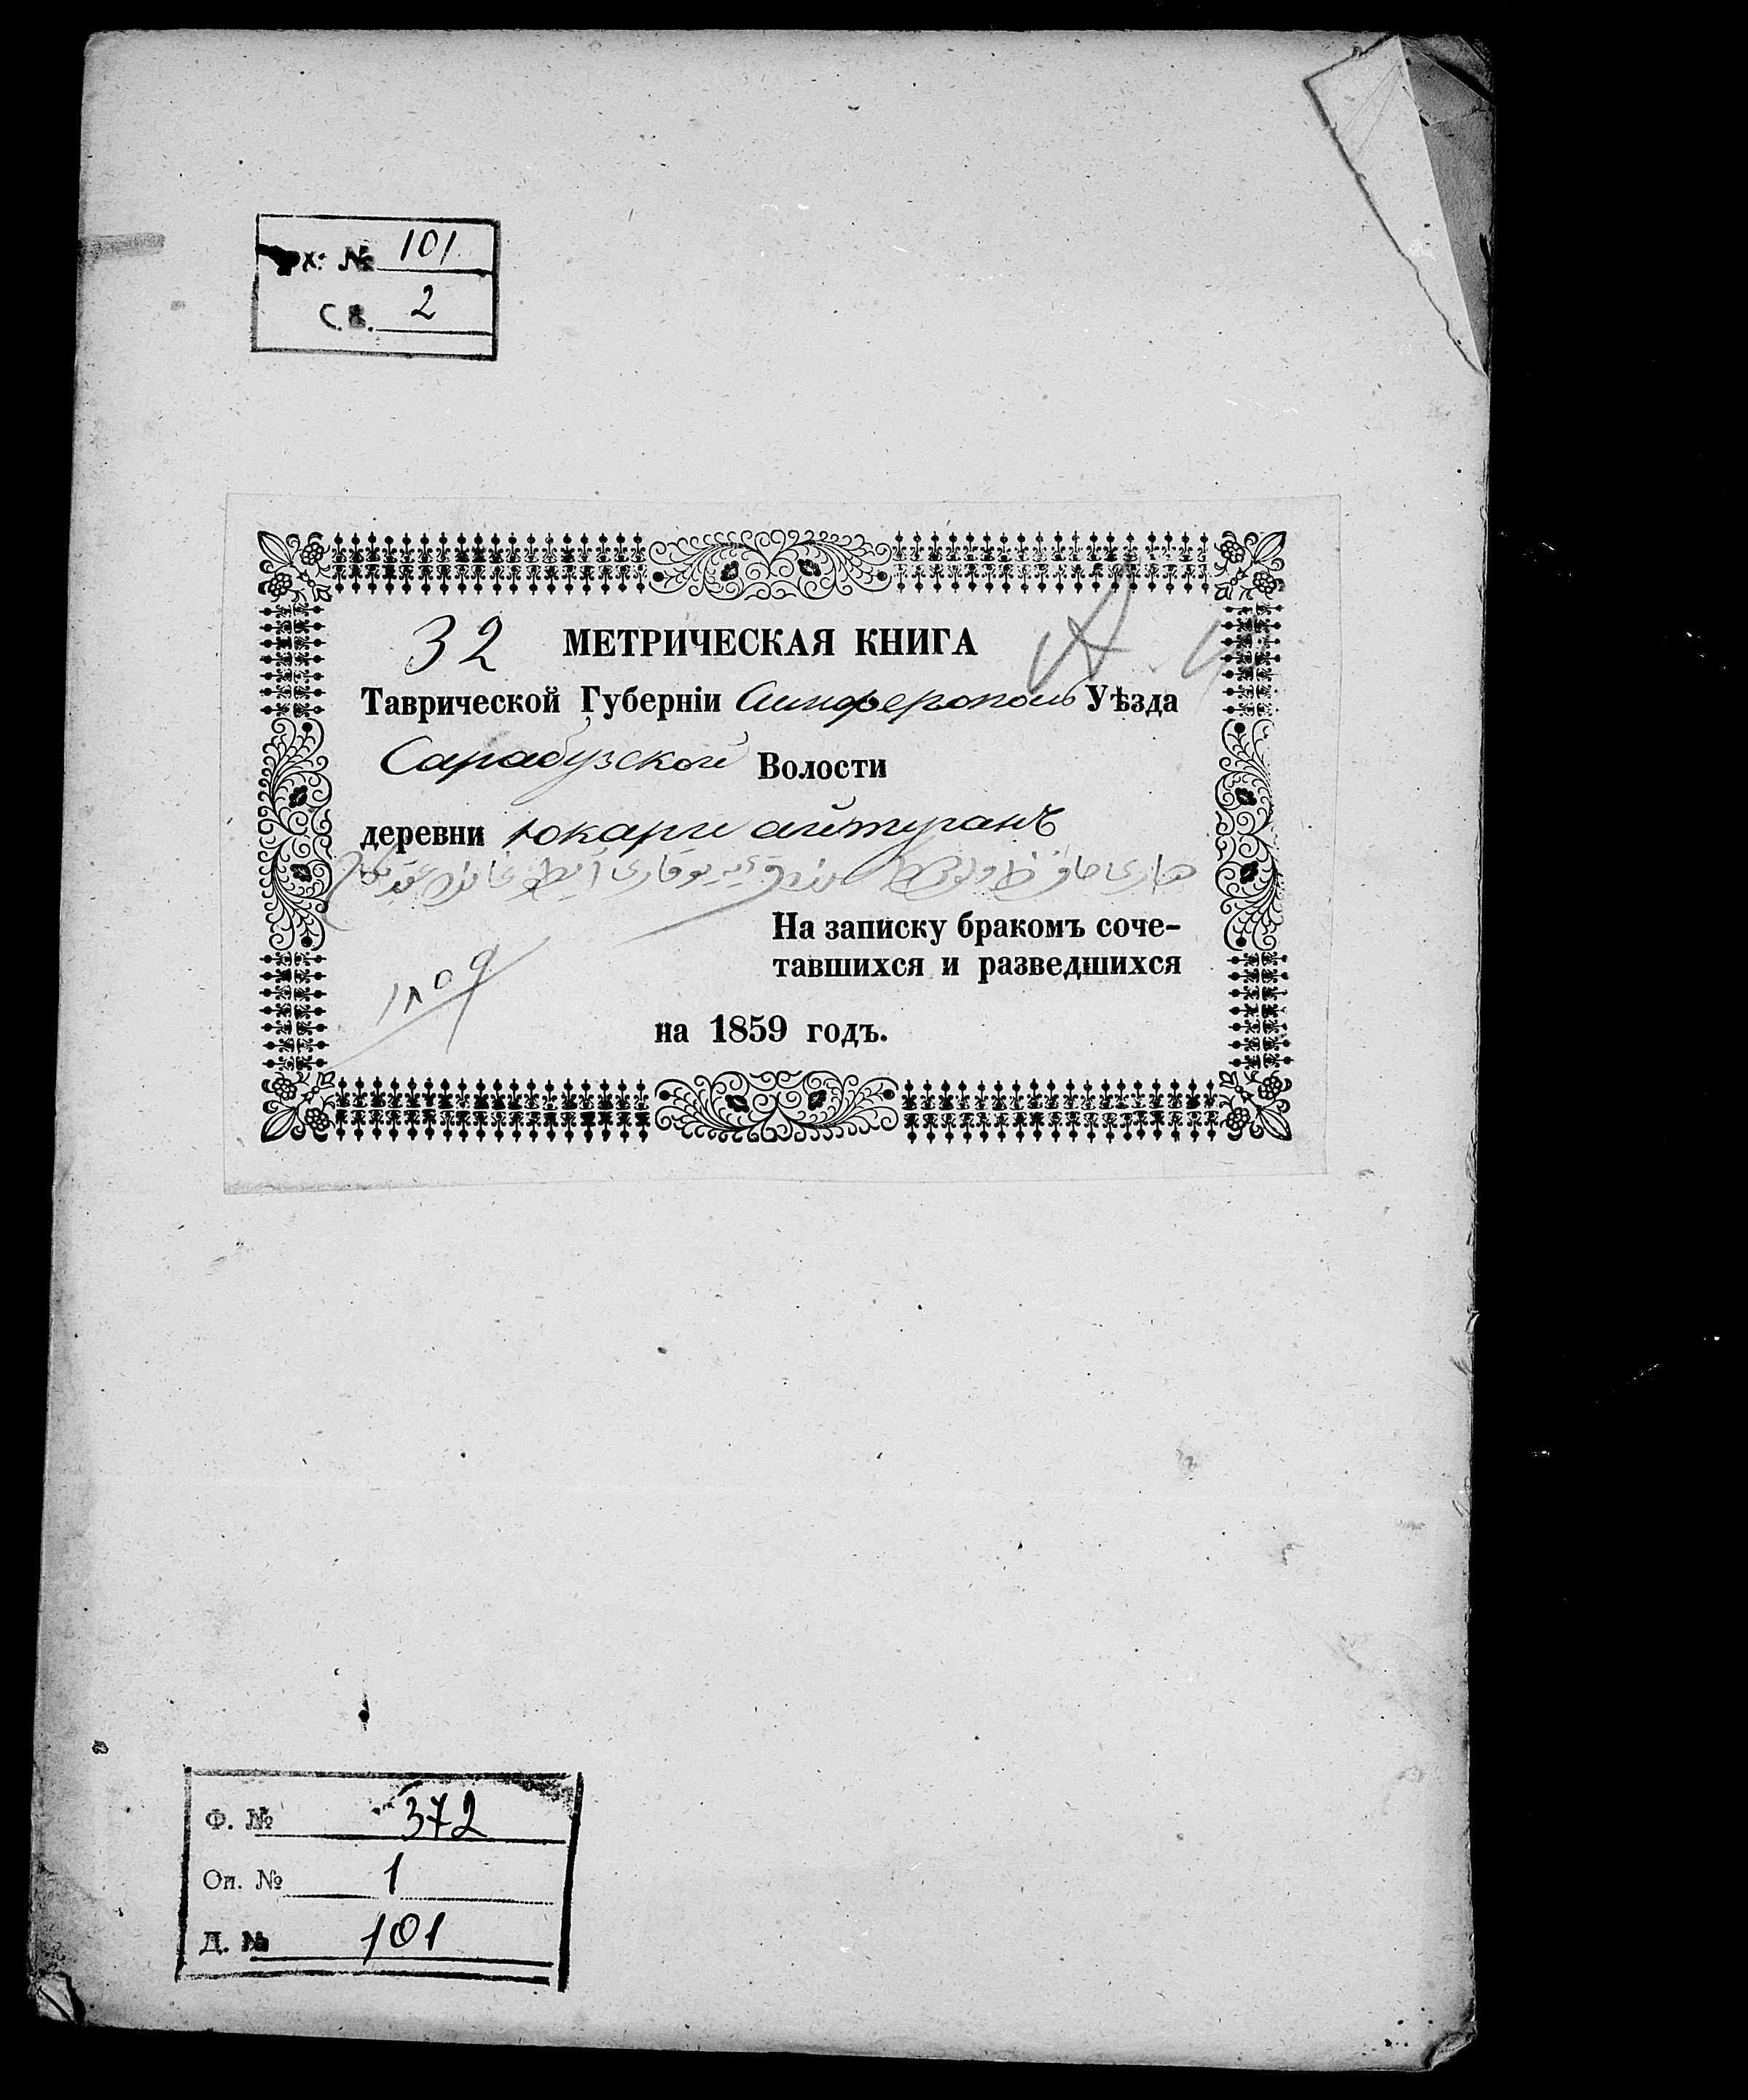 х. № 101
С.В. 2
32 МЕТРИЧЕСКАЯ КНИГА
Таврической Губерніи Симферополь Уѣзда
Сарабузской Волости
деревни юкарги айтуганъ
На записку бракомъ соче-
тавшихся и разведшихся
на 1859 годъ.
Ф. № 372
Оп. № 1
Д. № 101